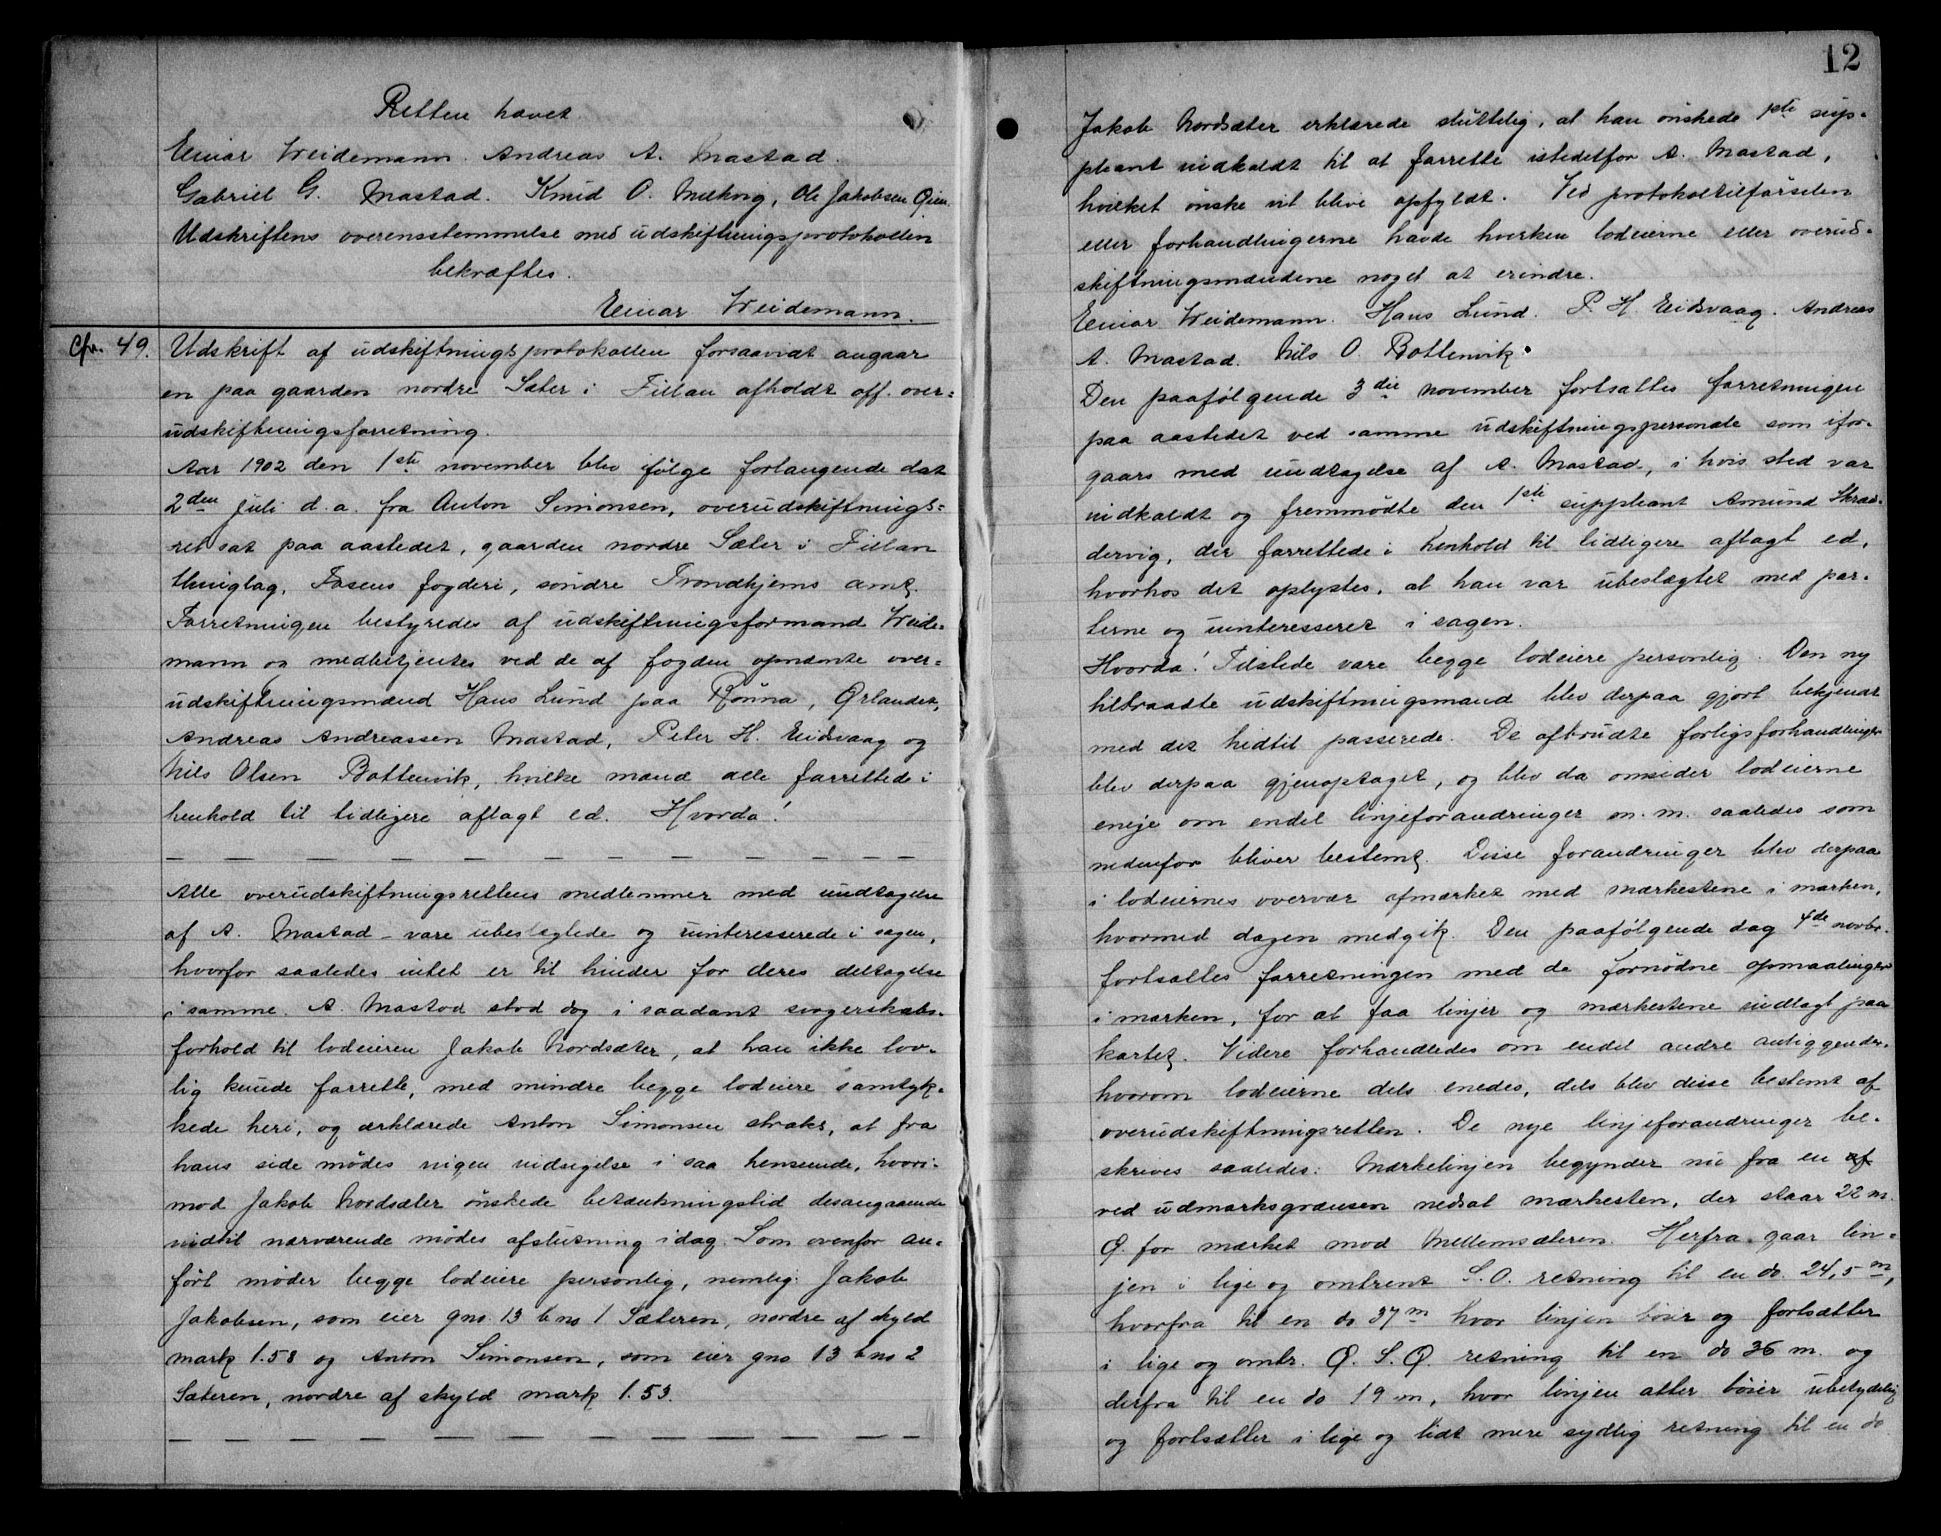 Retten hævet
Einar Weidemann. Andreas A. Mastad.
Gabriel G. Mastad. Knud O. Melkvig, Ole Jakobsen Øien.
Udskriftens overensstemmelse med udskiftningsprotokollen
bekræftes.
Einar Weidemann.
Cfr. 49. Udskrift af udskiftningsprotokollen forsaavidt angaar
en paa gaarden nordre Sæter i Fillan afholdt off. over=
udskiftningsforretning.
Aar 1902 den 1ste november blev ifølge forlangende dat
2den juli d.a. fra Anton Simonsen, overudskiftnings=
ret sat paa aastedet, gaarden nordre Sæter i Fillan
thinglag, Fosens fogderi, søndre Trondhjems amt.
Forretningen bestyredes af udskiftningsformand Weide=
mann og medbetjentes ved de af fogden opnævnte over=
udskiftningsmænd Hans Lund paa Rønna, Ørlandet,
Andreas Andreassen Mastad, Peter H. Eidsvaag og
Nils Olsen Bottenvik, hvilke mænd alle forrettede i
henhold til tidligere aflagt ed. Hvorda!
Alle overudskiftningsrettens medlemmer med undtagelse
af A. Mastad – vare ubeslægtede og uinteresserede i sagen,
hvorfor saaledes intet er til hinder for deres deltagelse
i samme. A. Mastad stod dog i saadant svogerskabs-
forhold til lodeieren Jakob Nordsæter, at han ikke lov-
lig kunde forrette, med mindre begge lodeiere samtyk-
kede heri, og erklærede Anton Simonsen straks, at fra
hans side mødes ingen indsigelse i saa henseende, hvori-
mod Jakob Nordsæter ønskede betænkningstid desangaaende
indtil nærværende mødes afslutning idag. Som ovenfor an-
ført møder begge lodeiere personlig, nemlig: Jakob
Jakobsen, som eier gno 13 bno 1 Sæteren, nordre af skyld
mark 1.58 og Anton Simonsen, som eier gno 13 bno 2
Sæteren, nordre af skyld mark 1.53.
12
Jakob Nordsæter erklærede sluttelig, at han ønskede 1ste sup-
pleant indkaldt til at forrette istedetfor A. Mastad,
hvilket ønske vil blive opfyldt. Ved protokoltilførselen
eller forhandlingerne havde hverken lodeierne eller overud-
skiftningsmændene noget at erindre.
Einar Weidemann. Hans Lund. P. H. Eidsvaag. Andreas
A. Mastad. Nils O. Bottenvik.
Den paafølgende 3die november fortsattes forretningen
paa aastedet ved samme udskiftningspersonale som ifor-
gaars med undtagelse af A. Mastad, i hvis sted var
indkaldt og fremmødte den 1ste suppleant Amund Skred-
dervig, der forrettede i henhold til tidligere aflagt ed,
hvorhos det oplystes, at han var ubeslægtet med par-
terne og uinteresseret i sagen.
Hvorda! Tilstede vare begge lodeiere personlig. Den ny
tiltraadte udskiftningsmand blev derpaa gjort bekjendt
med det hidtil passerede. De afbrudte forligsforhandlinger
blev derpaa gjenoptaget, og blev da omsider lodeierne
enige om endel linjeforandringer m. m. saaledes som
nedenfor bliver bestemt. Disse forandringer blev derpaa
i lodeiernes overvær opmærket med mærkestene i marken,
hvormed dagen medgik. Den paafølgende dag 4de novbr.
fortsattes forretningen med de fornødne opmaalinger
i marken, for at faa linjer og mærkestene indlagt paa
kartet. Videre forhandledes om endel andre anliggender,
hvorom lodeierne dels enedes, dels blev disse bestemt af
overudskiftningsretten. De nye linjeforandringer be-
skrives saaledes: Mærkelinjen begynder nu fra en af
ved udmarksgrænsen nedsat mærkesten, der staar 22 m.
Ø. for mærket mod Mellemsæteren. Herfra gaar lin-
jen i lige og omtrent S.O. retning til en do. 24,5 m,
hvorfra til en do 37 m hvor linjen bøier og fortsætter
i lige og omtr. Ø. S. Ø. retning til en do 36 m. og
derfra til en do 19 m, hvor linjen atter bøier ubetydelig
og fortsætter i lige og lidt mere sydlig retning til en do